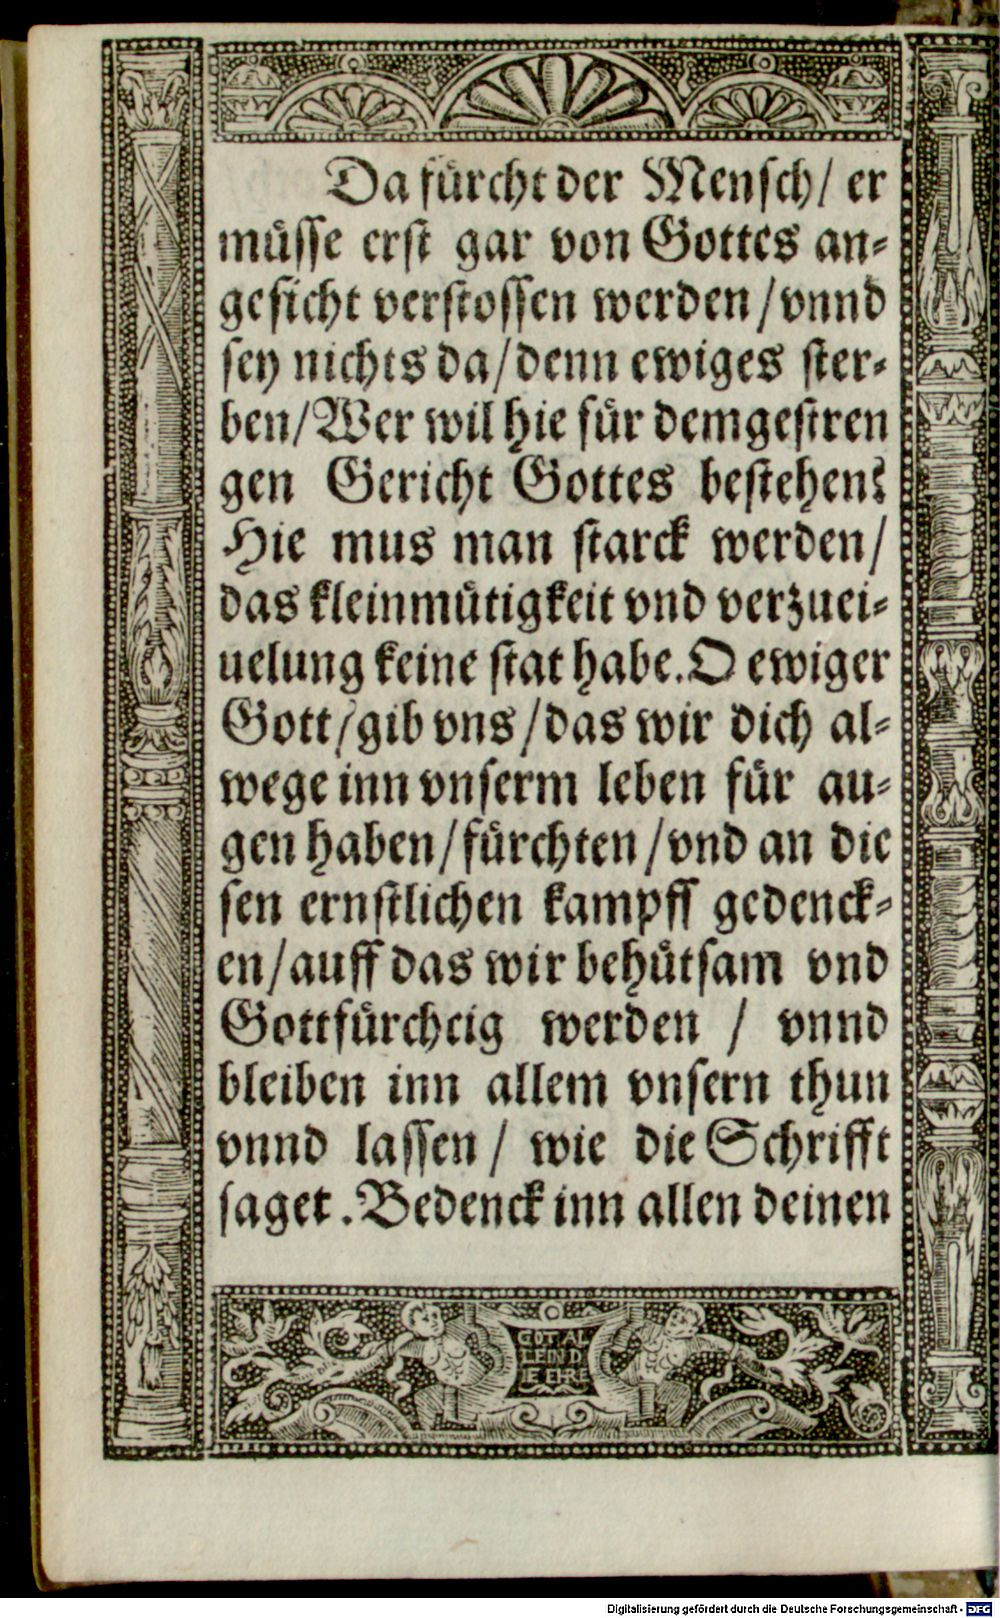 Da fuͤrcht der Mensch/ er
muͤsse erst gar von Gottes an⸗
gesicht verstossen werden/vnnd
sey nichts da/denn ewiges ster⸗
ben/Wer wil hie fuͤr demgestren
gen Gericht Gottes bestehen?
Hie mus man starck werden/
das kleinmuͤtigkeit vnd verzuei⸗
uelung keine stat habe. O ewiger
Gott/gib vns/das wir dich al⸗
wege inn vnserm leben fuͤr au⸗
gen haben/fuͤrchten/vnd an die
sen ernstlichen kampff gedenck⸗
en/auff das wir behuͤtsam vnd
Gottfuͤrchtig werden / vnnd
bleiben inn allem vnsern thun
vnnd lassen/ wie die Schrifft
saget. Bedenck inn allen deinen
GOT AL
LEIN D
IE ERE
Digitalisierung gefördert durch die Deutsche Forschungsgemeinschaft - DFG